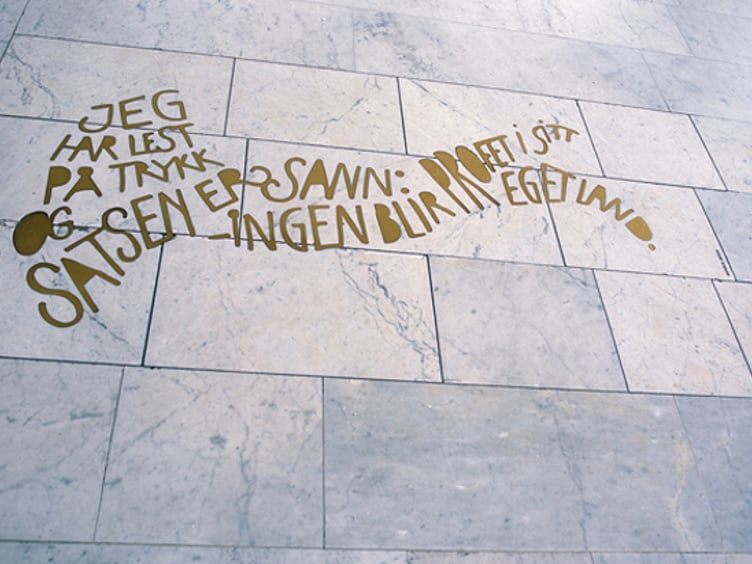 JEG
HAR LEST
PÅ TRYKK
OG
SATSEN ER SANN:
-INGEN BLIR PROFET i SiTT
EGET LAND.